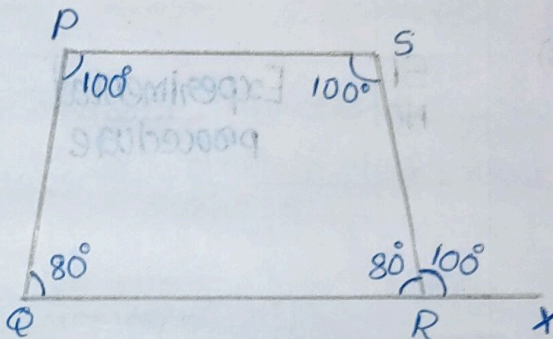 P
S
100°
100°
80°
80°
100°
Q
R
X